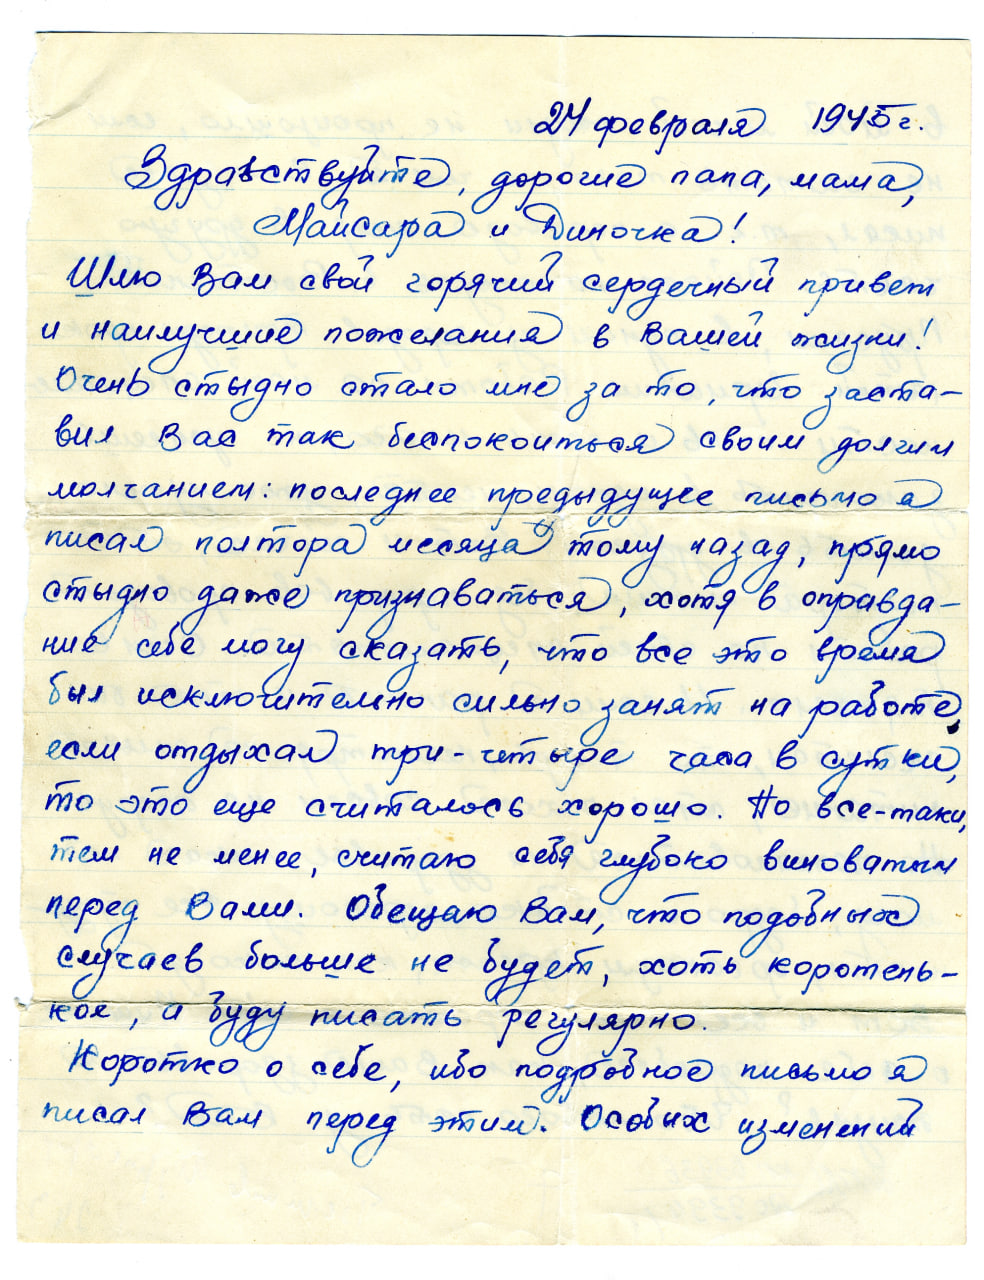 24 февраля 1945 г.
Здравствуйте, дорогие папа, мама,
Майсара и Диночка!
Шлю Вам свой горячий сердечный привет
и наилучшие пожелания в Вашей жизни!
Очень стыдно стало мне за то, что заста-
вил Вас так беспокоиться своим долгим
молчанием: последнее предыдущее письмо я
писал полтора месяца тому назад, прямо
стыдно даже признаваться, хотя в оправда-
ние себе могу сказать, что все это время
был исключительно сильно занят на работе,
если отдыхал три-четыре часа в сутки,
то это еще считалось хорошо. Но все-таки,
тем не менее, считаю себя глубоко виноватым
перед Вами. Обещаю Вам, что подобных
случаев больше не будет, хоть коротень-
кое, а буду писать регулярно.
Коротко о себе, ибо подробное письмо я
писал Вам перед этим. Особых изменений